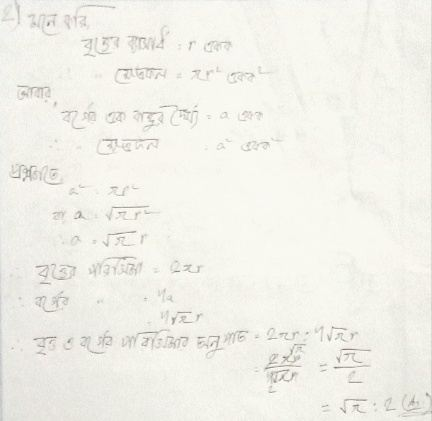 2) মনে করি,
বৃত্তের ব্যাসার্ধ = r একক
∴ ক্ষেত্রফল = πr² একক²
আবার,
বর্গের এক বাহুর দৈর্ঘ্য = a একক
∴ ক্ষেত্রফল = a² একক²
প্রশ্নমতে,
a² = πr²
বা a = √πr²
∴ a = √π r
∴ বৃত্তের পরিসীমা = 2πr
∴ বর্গের " = 4a
= 4√π r
∴ বৃত্ত ও বর্গের পরিসীমার অনুপাত = 2πr : 4√π r
= 2πr / 4√π r = √π / 2
= √π : 2 (Ans)